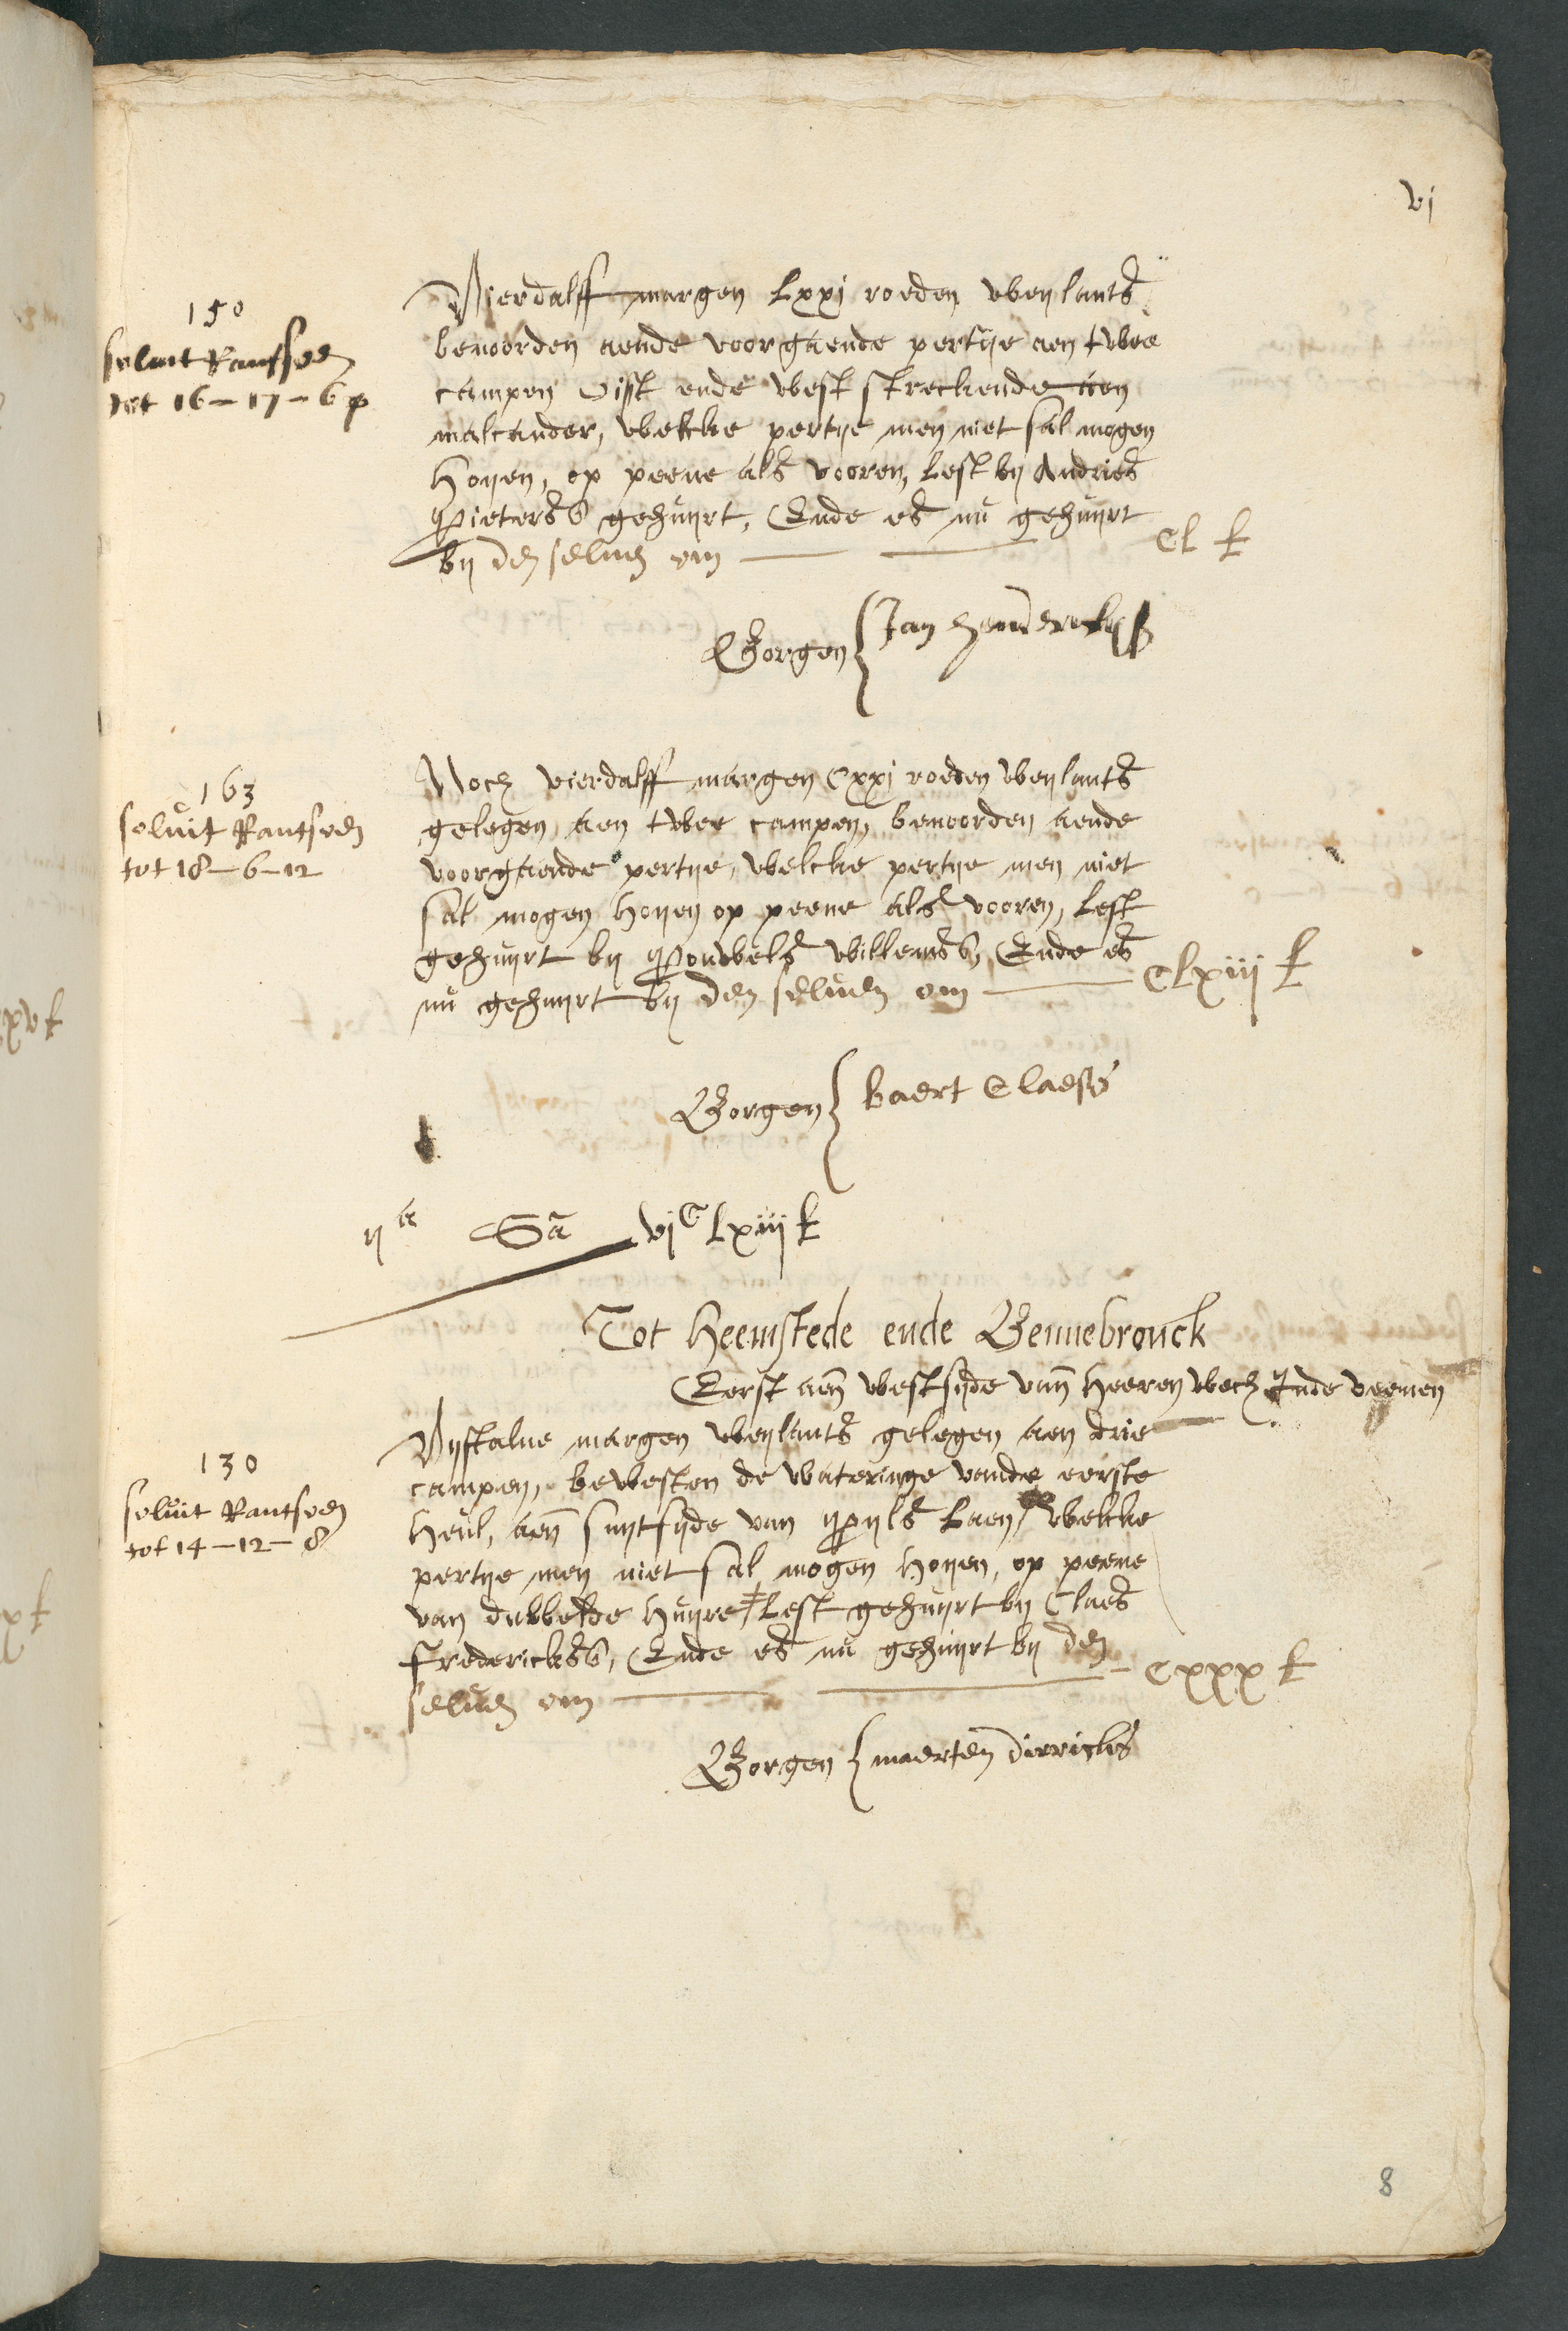 vj
150
soluit Rantsoen
tot 16-17-6 p
Vierdalff margen Lxxj roeden weylants
benoorden aende voorgaende pertije aen twee
campen Oist ende west streckende aen
malcander, welcke pertije men niet sal mogen
hoijen, op peene als vooren, Lest bij Andries
Pieterss gehuijrt, Ende es nu gehuijrt
bij den seluen om
CL £
Borgen { Jan henderickss
163
soluit Rantsoen
tot 18-6-12
Noch vierdalff margen Cxxj roeden weylants
gelegen aen twee campen, benoorden aende
voorgaende pertije, welcke pertije men niet
sal mogen hoijen op peene als vooren, Lest
gehuijrt bij Pouwels willemss, Ende es
nu gehuijrt bij den seluen om
CLxiij £
Borgen { baert Claess
ija Sa vjC Lxiij £
Tot Heemstede ende Bennebrouck
Eerst aen westsijde vann heeren wech Inde veenen
130
soluit Rantsoen
tot 14-12-8
Vijftalue margen weylants gelegen aen drie
campen, bewesten de wateringe vande eerste
heul, aen suijtsijde van pijls Laen, welcke
pertije men niet sal mogen hoijen, op peene
van dubbelde huijre Lest gehuijrt bij Claes
Frederickss, Ende es nu gehuijrt bij den
seluen om
Cxxx £
Borgen { maerten dirricks
8